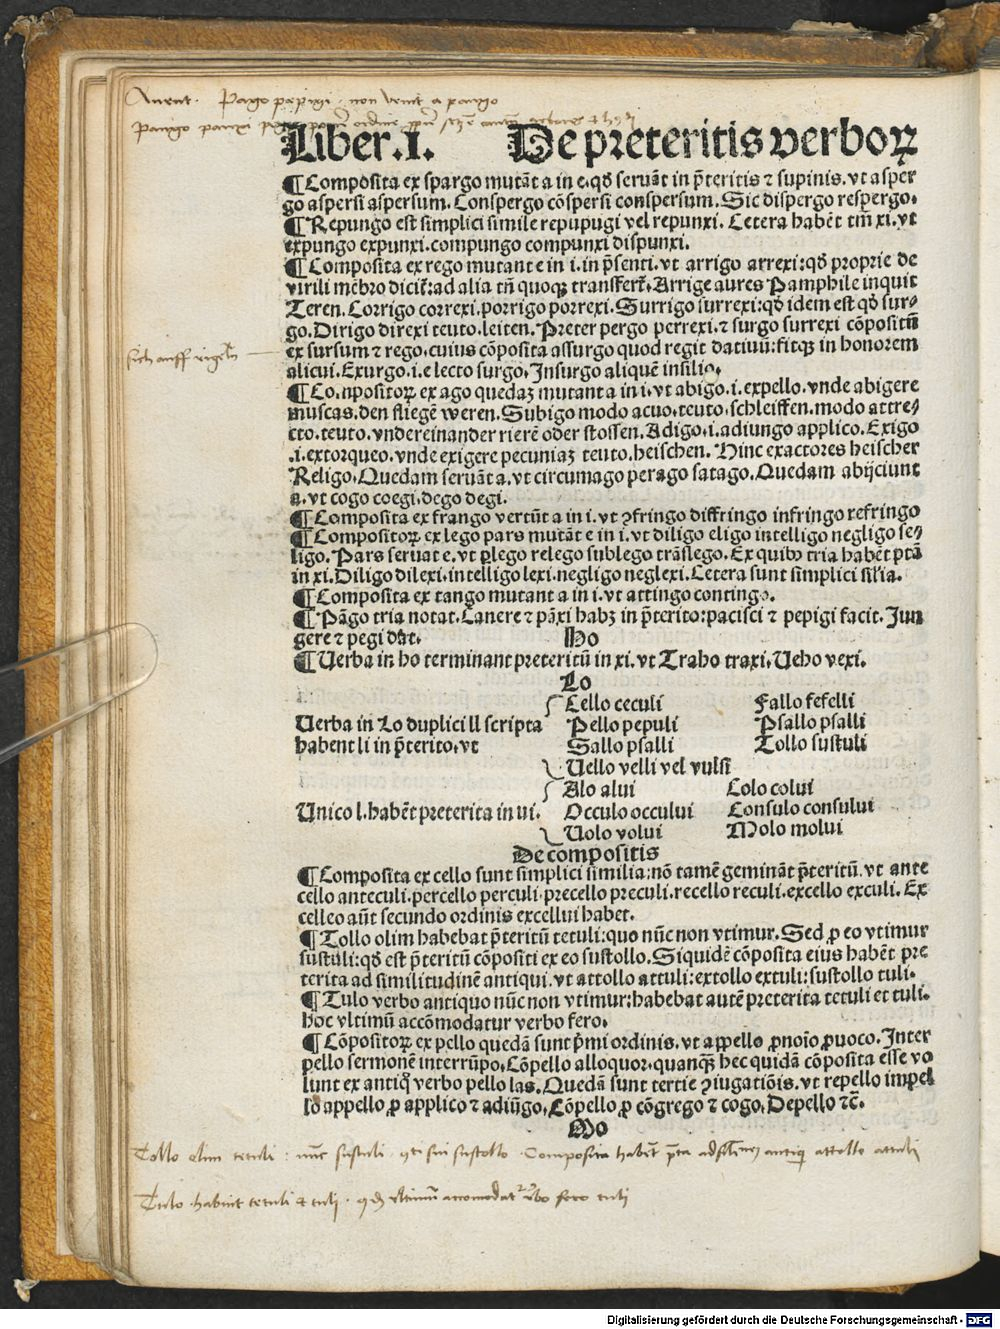 Auent. Pago pepigi. non venit a pango
Pango panxi
Liber.I. De preteritis verboꝝ
¶Composita ex spargo mutāt a in e.qd̄ seruāt in p̄teritis ⁊ supinis.vt asper
go aspersi aspersum.Conspergo cōspersi conspersum.Sic dispergo respergo.
¶Repungo est simplici simile repupugi vel repunxi.Cetera habēt tm̄ xi.vt
expungo expunxi.compungo compunxi dispunxi.
¶Composita ex rego mutant e in i.in p̄senti.vt arrigo arrexi:qd̄ proprie de
virili mēbro dicit̄:ad alia tn̄ quoqꝫ transfert̄.Arrige aures Pamphile inquit
Teren.Corrigo correxi.porrigo porrexi.Surrigo surrexi:qd̄ idem est qd̄ sur⸗
go.Dirigo direxi teuto.leiten.Preter pergo perrexi.⁊ surgo surrexi cōpositū
ex sursum ⁊ rego.cuius cōposita assurgo quod regit datiuū:fitqꝫ in honorem
sich auff rigeln
alicui.Exurgo.i.e lecto surgo.Insurgo aliquē insilio.
¶Compositoꝝ ex ago quedaꝫ mutant a in i.vt abigo.i.expello.vnde abigere
muscas.den fliegē weren.Subigo modo acuo.teuto.schleiffen.modo attre⸗
cto.teuto.vndereinander rierē oder stossen.Adigo.i.adiungo applico.Exigo
.i.extorqueo.vnde exigere pecuniaꝫ teuto.heischen.Hinc exactores heischer
Religo.Quedam seruāt a.vt circumago perago satago.Quedam abijciunt
a.vt cogo coegi.dego degi.
¶Composita ex frango vertūt a in i.vt ꝯfringo diffringo infringo refringo
¶Compositoꝝ ex lego pars mutāt e in i.vt diligo eligo intelligo negligo se⸗
ligo.Pars seruat e.vt ꝑlego relego sublego trāslego.Ex quibꝰ tria habēt ptā
in xi.Diligo dilexi.intelligo lexi.negligo neglexi.Cetera sunt simplici sil'ia.
¶Composita ex tango mutant a in i.vt attingo contingo.
¶Pāgo tria notat.Canere ⁊ pāxi habꝫ in p̄terito:pacisci ⁊ pepigi facit.Jun
gere ⁊ pegi dāt. Ho
¶Uerba in ho terminant preteritū in xi.vt Traho traxi.Ueho vexi.
Lo
Cello ceculi Fallo fefelli
Uerba in Lo duplici ll scripta Pello pepuli Psallo psalli
habent li in p̄terito.vt Sallo psalli Tollo sustuli
Uello velli vel vulsi
Alo alui Colo colui
Unico l.habēt preterita in ui. Occulo occului Consulo consului
Uolo volui Molo molui
De compositis
¶Composita ex cello sunt simplici similia:nō tamē gemināt p̄teritū.vt ante
cello anteculi.percello perculi.precello preculi.recello reculi.excello exculi.Ex
celleo aūt secundo ordinis excellui habet.
¶Tollo olim habebat p̄teritū tetuli:quo nūc non vtimur.Sed ꝓ eo vtimur
sustuli:qd̄ est p̄teritū cōpositi ex eo sustollo.Siquidē cōposita eius habēt pre
terita ad similitudinē antiqui.vt attollo attuli:extollo extuli:sustollo tuli.
¶Tulo verbo antiquo nūc non vtimur:habebat autē preterita tetuli et tuli.
hoc vltimū accōmodatur verbo fero.
¶Cōpositoꝝ ex pello quedā sunt p̄mi ordinis.vt appello ꝓnoīo ꝓuoco.Inter
pello sermonē interrūpo.Cōpello alloquor.quanqꝫ hec quidā cōposita esse vo
lunt ex antiq̄ verbo pello las.Quedā sunt tertie ꝯiugatiōis.vt repello impel
lo appello ꝓ applico ⁊ adiūgo.Cōpello ꝓ cōgrego ⁊ cogo.Depello ⁊c̄.
Mo
Tollo olim tetuli : nūc sustuli . sustollo . Composita habēt antiq attollo attuli
Tulo . habuit tetuli et tuli . vltimū accomodat verbo fero tuli
Digitalisierung gefördert durch die Deutsche Forschungsgemeinschaft - DFG